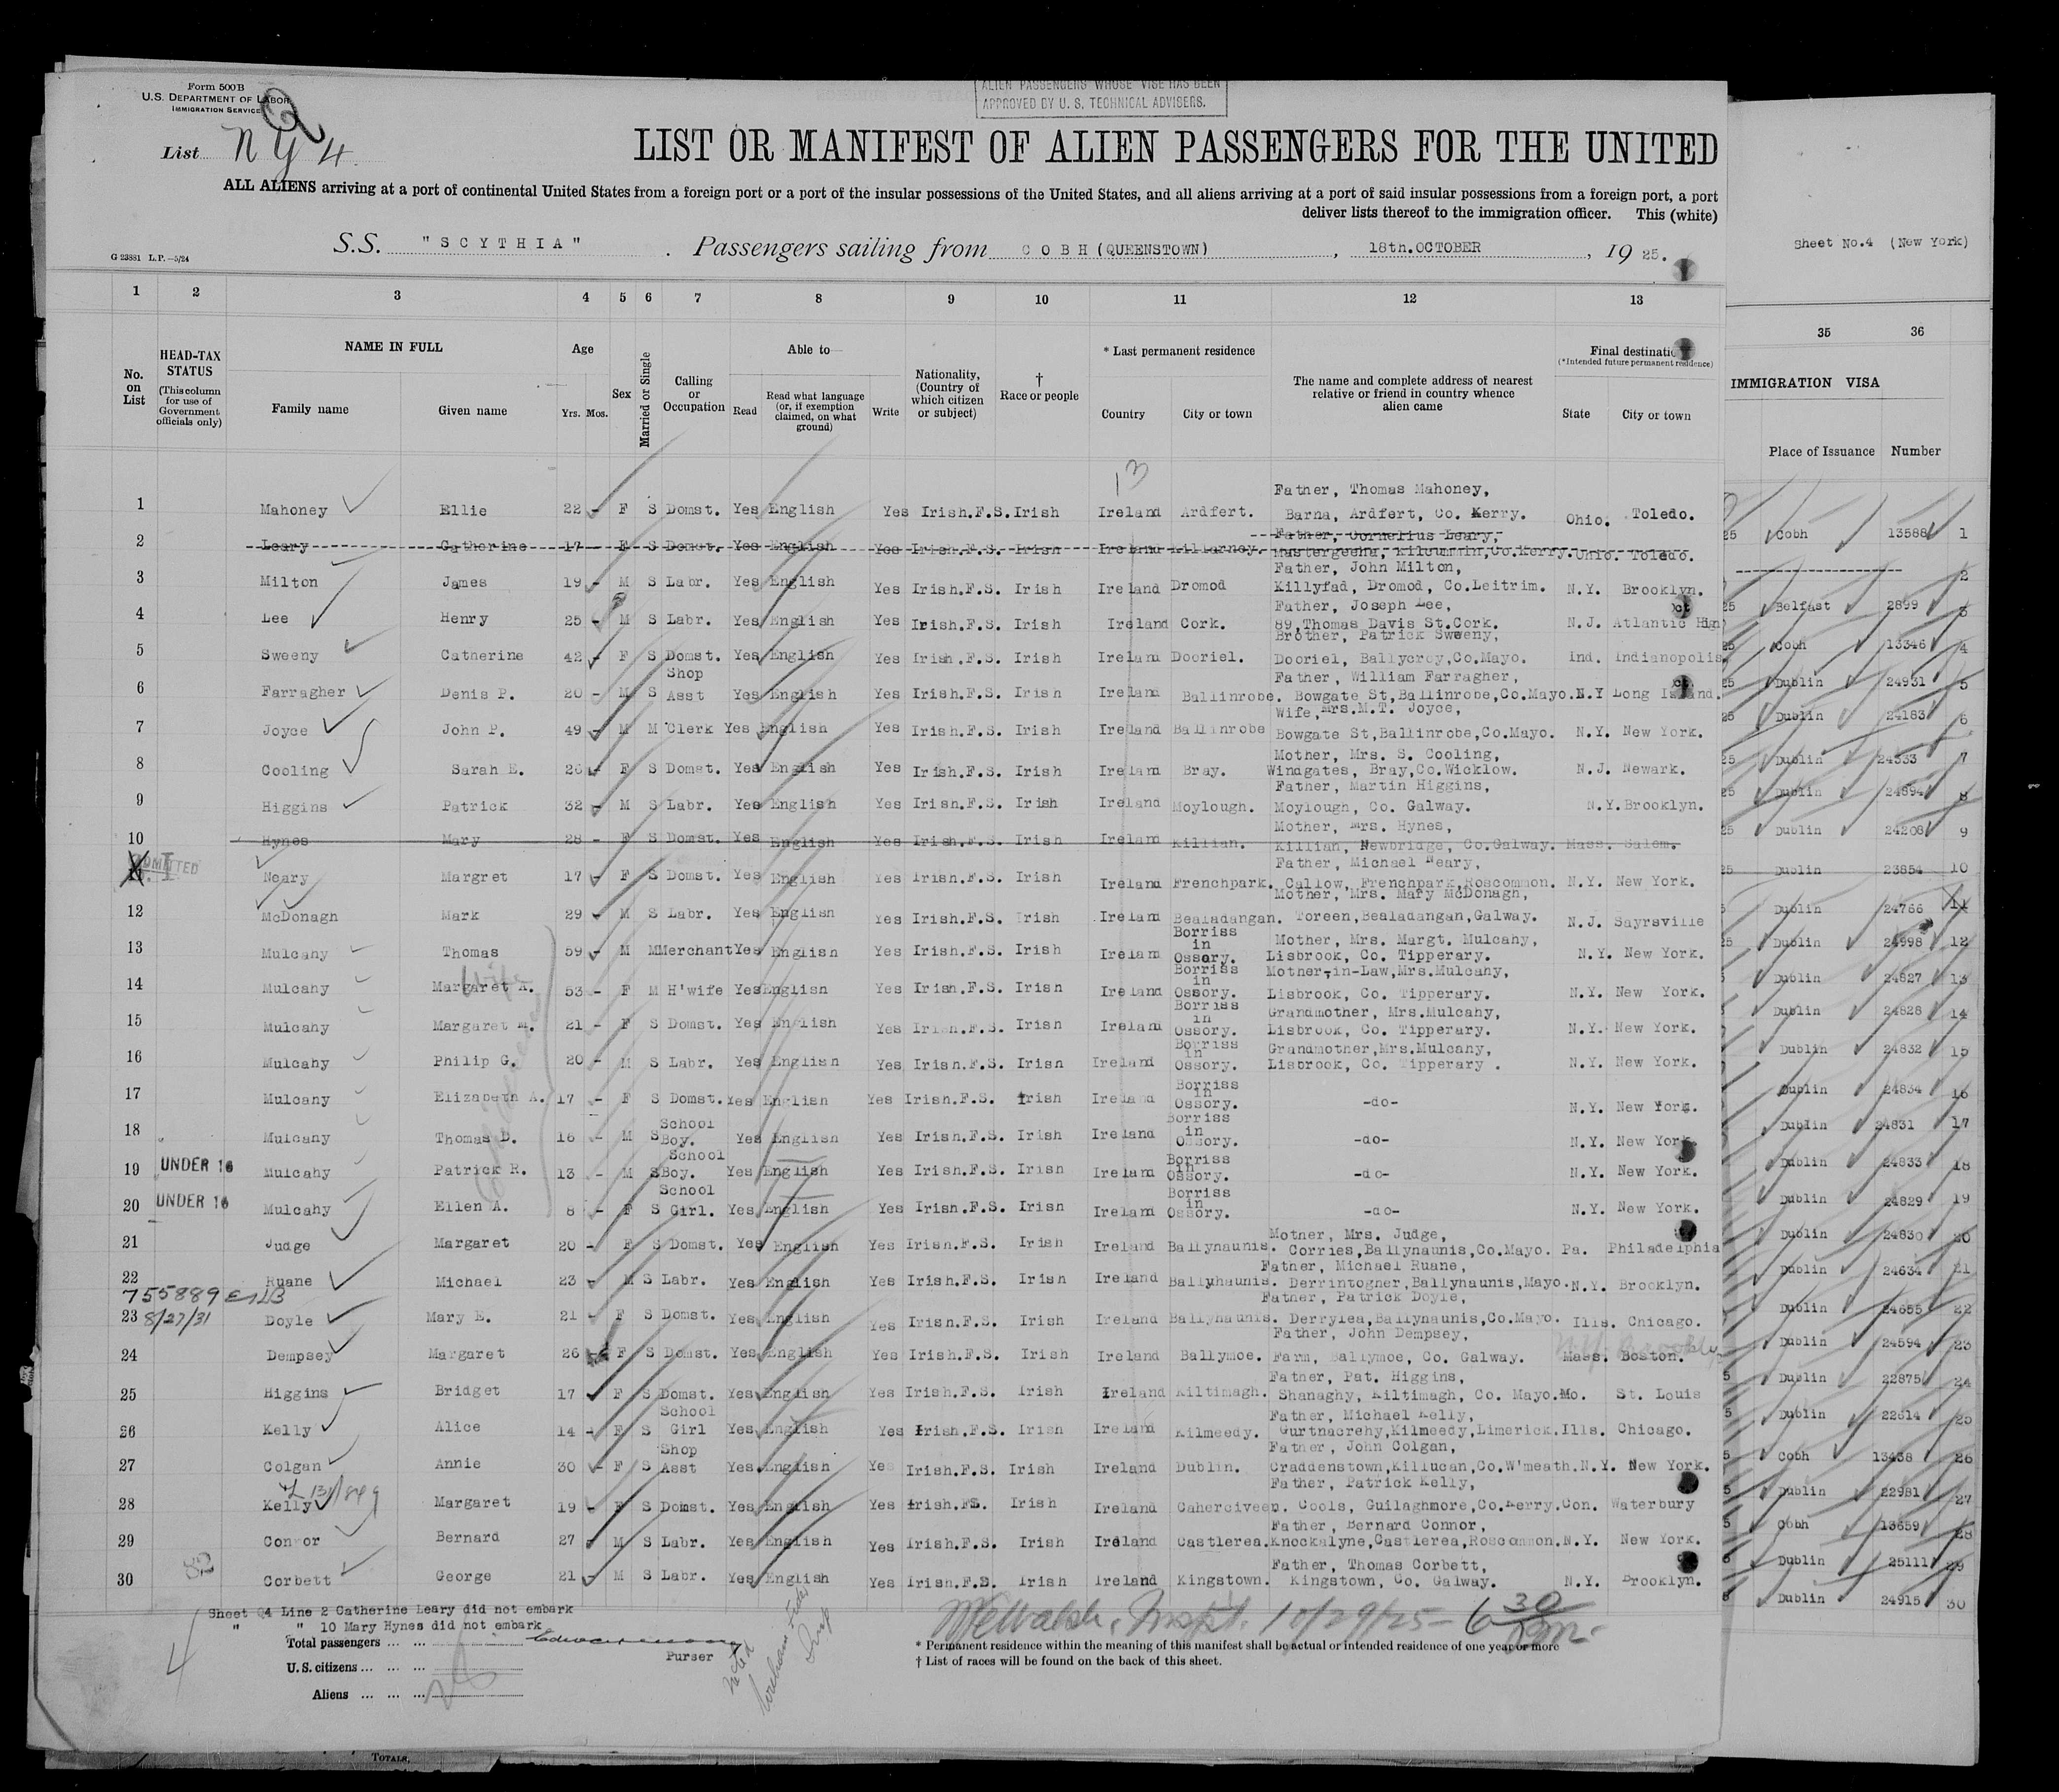 Form 500B
U.S. DEPARTMENT OF LABOR
IMMIGRATION SERVICE
ALIEN PASSENGERS WHOSE VISE HAS BEEN
APPROVED BY U. S. TECHNICAL ADVISERS.
List NY 4
LIST OR MANIFEST OF ALIEN PASSENGERS FOR THE UNITED
ALL ALIENS arriving at a port of continental United States from a foreign port or a port of the insular possessions of the United States, and all aliens arriving at a port of said insular possessions from a foreign port, a port
deliver lists thereof to the immigration officer. This (white)
S.S. "SCYTHIA". Passengers sailing from COBH (QUEENSTOWN), 18th.OCTOBER, 1925.
Sheet No.4 (New York)
G 23881 L.P.—5/24
1 2 3 4 5 6 7 8 9 10 11 12 13 35 36
No. on List
HEAD-TAX STATUS
(This column for use of Government officials only)
NAME IN FULL
Family name Given name
Age
Yrs. Mos.
Sex
Married or Single
Calling or Occupation
Able to
Read
Read what language (or, if exemption claimed, on what ground)
Write
Nationality, (Country of which citizen or subject)
† Race or people
* Last permanent residence
Country City or town
The name and complete address of nearest relative or friend in country whence alien came
Final destinatio
(*Intended future permanent residence)
State City or town
IMMIGRATION VISA
Place of Issuance Number
13
1 Mahoney Ellie 22 - F S Domst. Yes English Yes Irish.F.S. Irish Ireland Ardfert. Father, Thomas Mahoney, Barna, Ardfert, Co. Kerry. Ohio. Toledo. 25 Cobh 13588 1
2 Leary Catherine 17 - F S Domst. Yes English Yes Irish.F.S. Irish Ireland Killarney. Father, Cornelius Leary, Mastergeeha, Kilcummin,Co.Kerry. Ohio. Toledo. 2
3 Milton James 19 - M S Labr. Yes English Yes Irish.F.S. Irish Ireland Dromod Father, John Milton, Killyfad, Dromod, Co.Leitrim. N.Y. Brooklyn. 25 Belfast 2899 3
4 Lee Henry 25 - M S Labr. Yes English Yes Irish.F.S. Irish Ireland Cork. Father, Joseph Lee, 89,Thomas Davis St.Cork. N.J. Atlantic Hgn 25 Cobh 13346 4
5 Sweeny Catherine 42 - F S Domst. Yes English Yes Irish.F.S. Irish Ireland Dooriel. Brother, Patrick Sweeny, Dooriel, Ballycroy,Co.Mayo. Ind. Indianopolis. 25 Dublin 24931 5
6 Farragher Denis P. 20 - M S Shop Asst Yes English Yes Irish.F.S. Irish Ireland Ballinrobe. Father, William Farragher, Bowgate St,Ballinrobe,Co.Mayo. N.Y Long Island. 25 Dublin 24183 6
7 Joyce John P. 49 - M M Clerk Yes English Yes Irish.F.S. Irish Ireland Ballinrobe Wife,Mrs.M.T. Joyce, Bowgate St,Ballinrobe,Co.Mayo. N.Y. New York. 25 Dublin 24333 7
8 Cooling Sarah E. 26 - F S Domst. Yes English Yes Irish.F.S. Irish Ireland Bray. Mother, Mrs. S. Cooling, Windgates, Bray,Co.Wicklow. N.J. Newark. 25 Dublin 24894 8
9 Higgins Patrick 32 - M S Labr. Yes English Yes Irish.F.S. Irish Ireland Moylough. Father, Martin Higgins, Moylough, Co. Galway. N.Y. Brooklyn. 25 Dublin 24208 9
10 Hynes Mary 28 - F S Domst. Yes English Yes Irish.F.S. Irish Ireland Killian. Mother, Mrs. Hynes, Killian, Newbridge, Co.Galway. Mass. Salem. 25 Dublin 23854 10
ADMITTED
11 Neary Margret 17 - F S Domst. Yes English Yes Irish.F.S. Irish Ireland Frenchpark. Father, Michael Neary, Callow, Frenchpark,Roscommon. N.Y. New York. Dublin 24766 11
12 McDonagh Mark 29 - M S Labr. Yes English Yes Irish.F.S. Irish Ireland Bealadangan. Mother, Mrs. Mary McDonagh, Toreen,Bealadangan,Galway. N.J. Sayrsville 25 Dublin 24998 12
13 Mulcahy Thomas 59 - M M Merchant Yes English Yes Irish.F.S. Irish Ireland Borriss in Ossory. Mother, Mrs. Margt. Mulcahy, Lisbrook, Co. Tipperary. N.Y. New York. Dublin 24827 13
Wife
14 Mulcahy Margaret A. 53 - F M H'wife Yes English Yes Irish.F.S. Irish Ireland Borriss in Ossory. Mother-in-Law,Mrs.Mulcahy, Lisbrook, Co. Tipperary. N.Y. New York. Dublin 24828 14
Children
15 Mulcahy Margaret M. 21 - F S Domst. Yes English Yes Irish.F.S. Irish Ireland Borriss in Ossory. Grandmother, Mrs.Mulcahy, Lisbrook, Co. Tipperary. N.Y. New York. Dublin 24832 15
16 Mulcahy Philip G. 20 - M S Labr. Yes English Yes Irish.F.S. Irish Ireland Borriss in Ossory. Grandmother,Mrs.Mulcahy, Lisbrook, Co. Tipperary . N.Y. New York. Dublin 24834 16
17 Mulcahy Elizabeth A. 17 - F S Domst. Yes English Yes Irish.F.S. Irish Ireland Borriss in Ossory. -do- N.Y. New York. Dublin 24831 17
18 Mulcahy Thomas D. 16 - M S School Boy. Yes English Yes Irish.F.S. Irish Ireland Borriss in Ossory. -do- N.Y. New York. Dublin 24833 18
19 UNDER 16 Mulcahy Patrick R. 13 - M S School Boy. Yes English Yes Irish.F.S. Irish Ireland Borriss in Ossory. -do- N.Y. New York. Dublin 24829 19
20 UNDER 16 Mulcahy Ellen A. 8 - F S School Girl. Yes English Yes Irish.F.S. Irish Ireland Borriss in Ossory. -do- N.Y. New York. Dublin 24830 20
21 Judge Margaret 20 - F S Domst. Yes English Yes Irish.F.S. Irish Ireland Ballyhaunis. Mother, Mrs. Judge, Corries,Ballyhaunis,Co.Mayo. Pa. Philadelphia Dublin 24634 21
22 Ruane Michael 23 - M S Labr. Yes English Yes Irish.F.S. Irish Ireland Ballyhaunis. Father, Michael Ruane, Derrintogher,Ballyhaunis,Mayo. N.Y. Brooklyn. Dublin 24655 22
755889
8/27/31
23 Doyle Mary E. 21 - F S Domst. Yes English Yes Irish.F.S. Irish Ireland Ballyhaunis. Father, Patrick Doyle, Derrylea,Ballyhaunis,Co.Mayo. Ills. Chicago. Dublin 24594 23
24 Dempsey Margaret 26 F S Domst. Yes English Yes Irish.F.S. Irish Ireland Ballymoe. Father, John Dempsey, Farm, Ballymoe, Co. Galway. Mass. Boston. N.Y. Brooklyn 5 Dublin 22875 24
25 Higgins Bridget 17 F S Domst. Yes English Yes Irish.F.S. Irish Ireland Kiltimagh. Father, Pat. Higgins, Shanaghy, Kiltimagh, Co. Mayo. Mo. St. Louis 5 Dublin 22514 25
26 Kelly Alice 14 - F S School Girl Yes English Yes Irish.F.S. Irish Ireland Kilmeedy. Father, Michael Kelly, Gurtnacrehy,Kilmeedy,Limerick. Ills. Chicago. 5 Cobh 13438 26
27 Colgan Annie 30 - F S Shop Asst Yes English Yes Irish.F.S. Irish Ireland Dublin. Father, John Colgan, Craddenstown,Killucan,Co.W'meath. N.Y. New York. 5 Dublin 22981 27
28 Kelly Margaret 19 - F S Domst. Yes English Yes Irish.FS. Irish Ireland Caherciveen. Father, Patrick Kelly, Cools, Guilaghmore,Co.Kerry. Con. Waterbury 5 Cobh 13659 28
29 Connor Bernard 27 M S Labr. Yes English Yes Irish.F.S. Irish Ireland Castlerea. Father, Bernard Connor, Knockalyne,Castlerea,Roscommon. N.Y. New York. 5 Dublin 25111 29
30 Corbett George 21 - M S Labr. Yes English Yes Irish.F.S. Irish Ireland Kingstown. Father, Thomas Corbett, Kingstown, Co. Galway. N.Y. Brooklyn. Dublin 24915 30
Sheet 4 Line 2 Catherine Leary did not embark
" " 10 Mary Hynes did not embark
Total passengers ... ...
Purser
U.S. citizens ... ... ...
Aliens ... ... ...
Walsh, Inspt. 10/29/25 - 6 30 pm.
* Permanent residence within the meaning of this manifest shall be actual or intended residence of one year or more
† List of races will be found on the back of this sheet.
TOTALS,